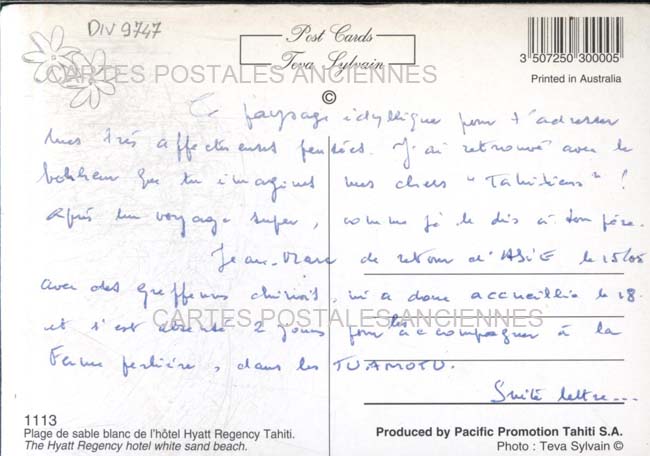 DIV 9747
Post Cards
Teva Sylvain
3 507250 300005
Printed in Australia
CARTES POSTALES ANCIENNES
©
Ce paysage idyllique pour t'adresser
mes très affectueuses pensées. J'ai retrouvé avec le
bonheur que tu imagines mes chers "Tahitiens" !
Après un voyage super, comme je le dis à ton père.
Jean-Marc de retour d'ASIE le 15/05
avec des greffeurs chinois, m'a donc accueillie le 18.
et s'est absenté 2 jours pour les accompagner à la
CARTES POSTALES ANCIENNES
Ferme perlière, dans les TUAMOTU.
Suite lettre...
1113
Plage de sable blanc de l'hôtel Hyatt Regency Tahiti.
The Hyatt Regency hotel white sand beach.
Produced by Pacific Promotion Tahiti S.A.
Photo : Teva Sylvain ©